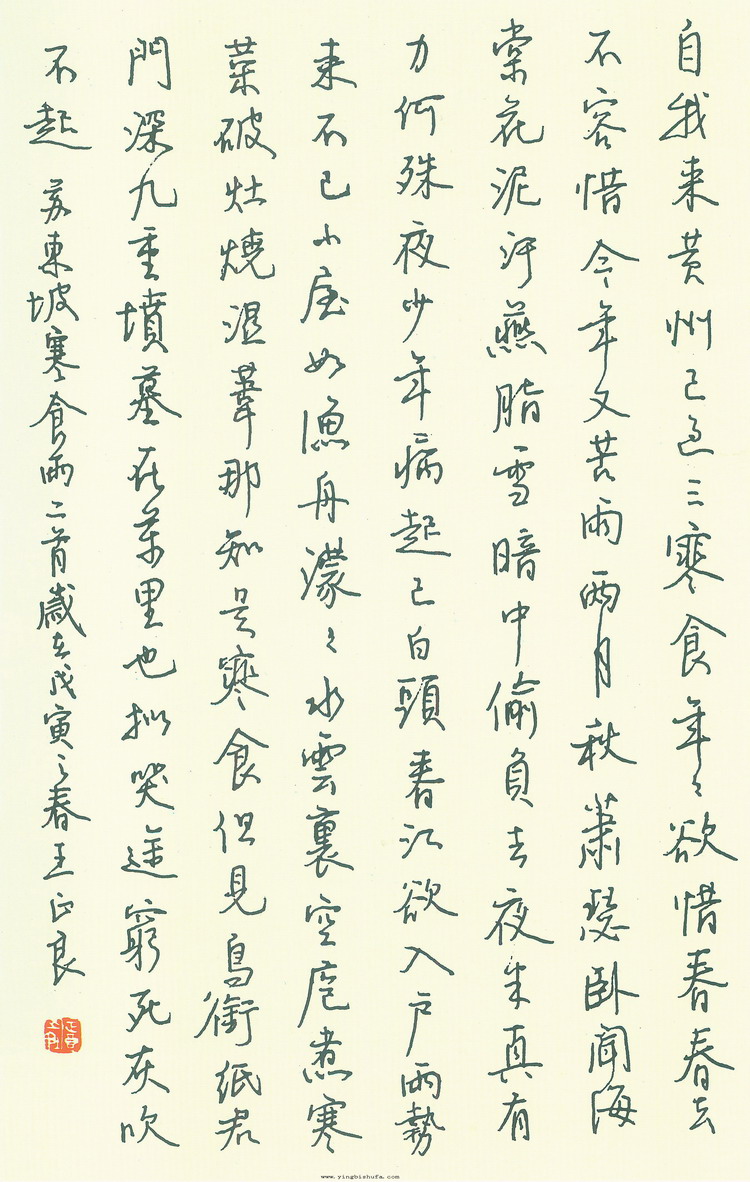 自我來黃州已過三寒食年々欲惜春春去
不容惜今年又苦雨兩月秋蕭瑟臥聞海
棠花泥汙燕脂雪暗中偷負去夜半真有
力何殊夜少年病起已白頭春江欲入戶雨勢
來不已小屋如漁舟濛々水雲裏空庖煮寒
菜破灶燒濕葦那知是寒食但見烏銜紙君
門深九重墳墓在萬里也擬哭途窮死灰吹
不起 蘇東坡寒食雨二首歲在戊寅之春王正良
www.yingbishufa.com